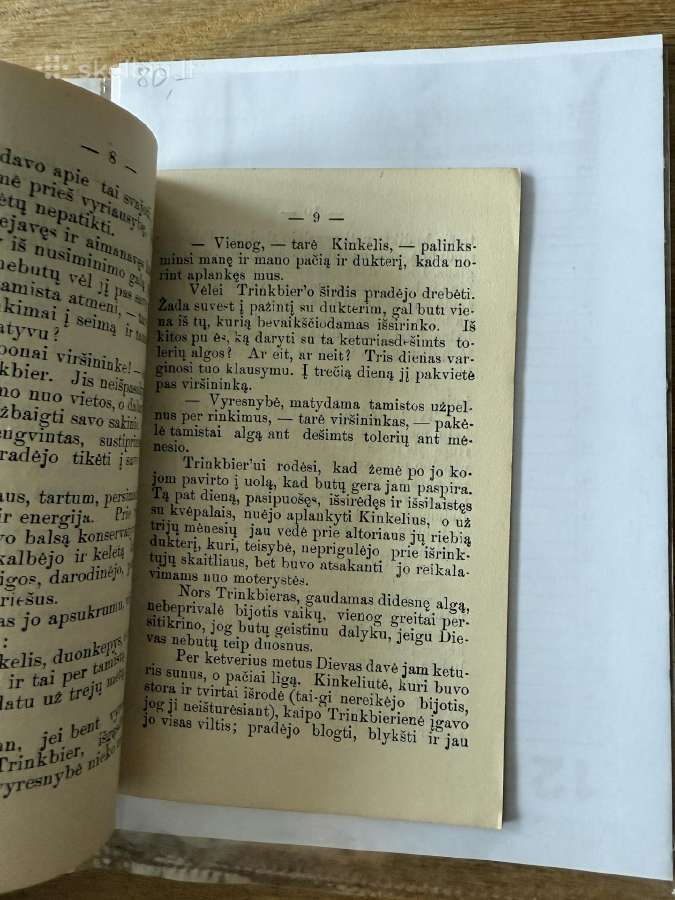 skelbiu.lt
80,-
— 8 —
davo apie tai
mė prieš vyriausybę,
ėtų nepatikti.
ejavęs ir aimanavęs
iš nusiminimo galą
nebutų vėl jį pas
tamista atmeni, —
kimai į seimą ir
atyvu?
ponai viršininke! —
kbier. Jis
mo nuo vietos, o
žbaigti savo
engvintas,
radėjo tikėti į
aus, tartum,
ir energija. Prie
vo balsą
kalbėjo ir keletą
igos, darodinėjo,
riešus.
as jo apsukrumu,
:
kelis, duonkepys,
ir tai per tamistą
datu už trejų metų
an, jei bent
Trinkbier,
vyresnybė nieko
— 9 —
— Vienog, — tarė Kinkelis, — palinks-
minsi manę ir mano pačią ir dukterį, kada no-
rint aplankęs mus.
Vėlei Trinkbier'o širdis pradėjo drebėti.
Žada suvest į pažintį su dukterim, gal buti vie-
na iš tų, kurią bevaikščiodamas išsirinko. Iš
kitos pu ės, ką daryti su ta keturiasdešimts to-
lerių algos? Ar eit, ar neit? Tris dienas var-
ginosi tuo klausymu. Į trečią dieną jį pakvietė
pas viršininką.
— Vyresnybė, matydama tamistos užpel-
nus per rinkimus, — tarė viršininkas, — pakė-
lė tamistai algą ant dešimts tolerių ant mė-
nesio.
Trinkbier'ui rodėsi, kad žemė po jo ko-
jom pavirto į uolą, kad butų gera jam paspira.
Tą pat dieną, pasipuošęs, išsirėdęs ir išsilaistęs
su kvėpalais, nuėjo aplankyti Kinkelius, o už
trijų mėnesių jau vedė prie altoriaus jų riebią
dukterį, kuri, teisybė, neprigulėjo prie išrink-
tųjų skaitliaus, bet buvo atsakanti jo reikala-
vimams nuo moterystės.
Nors Trinkbieras, gaudamas didesnę algą,
nebeprivalė bijotis vaikų, vienog greitai per-
sitikrino, jog butų geistinu dalyku, jeigu Die-
vas nebutų teip duosnus.
Per ketverius metus Dievas davė jam ketu-
ris sunus, o pačiai ligą. Kinkeliutė, kuri buvo
stora ir tvirtai išrodė (tai-gi nereikėjo bijotis,
jog ji neišturėsiant), kaipo Trinkbierienė įgavo
jo visas viltis; pradėjo blogti, blykšti ir jau